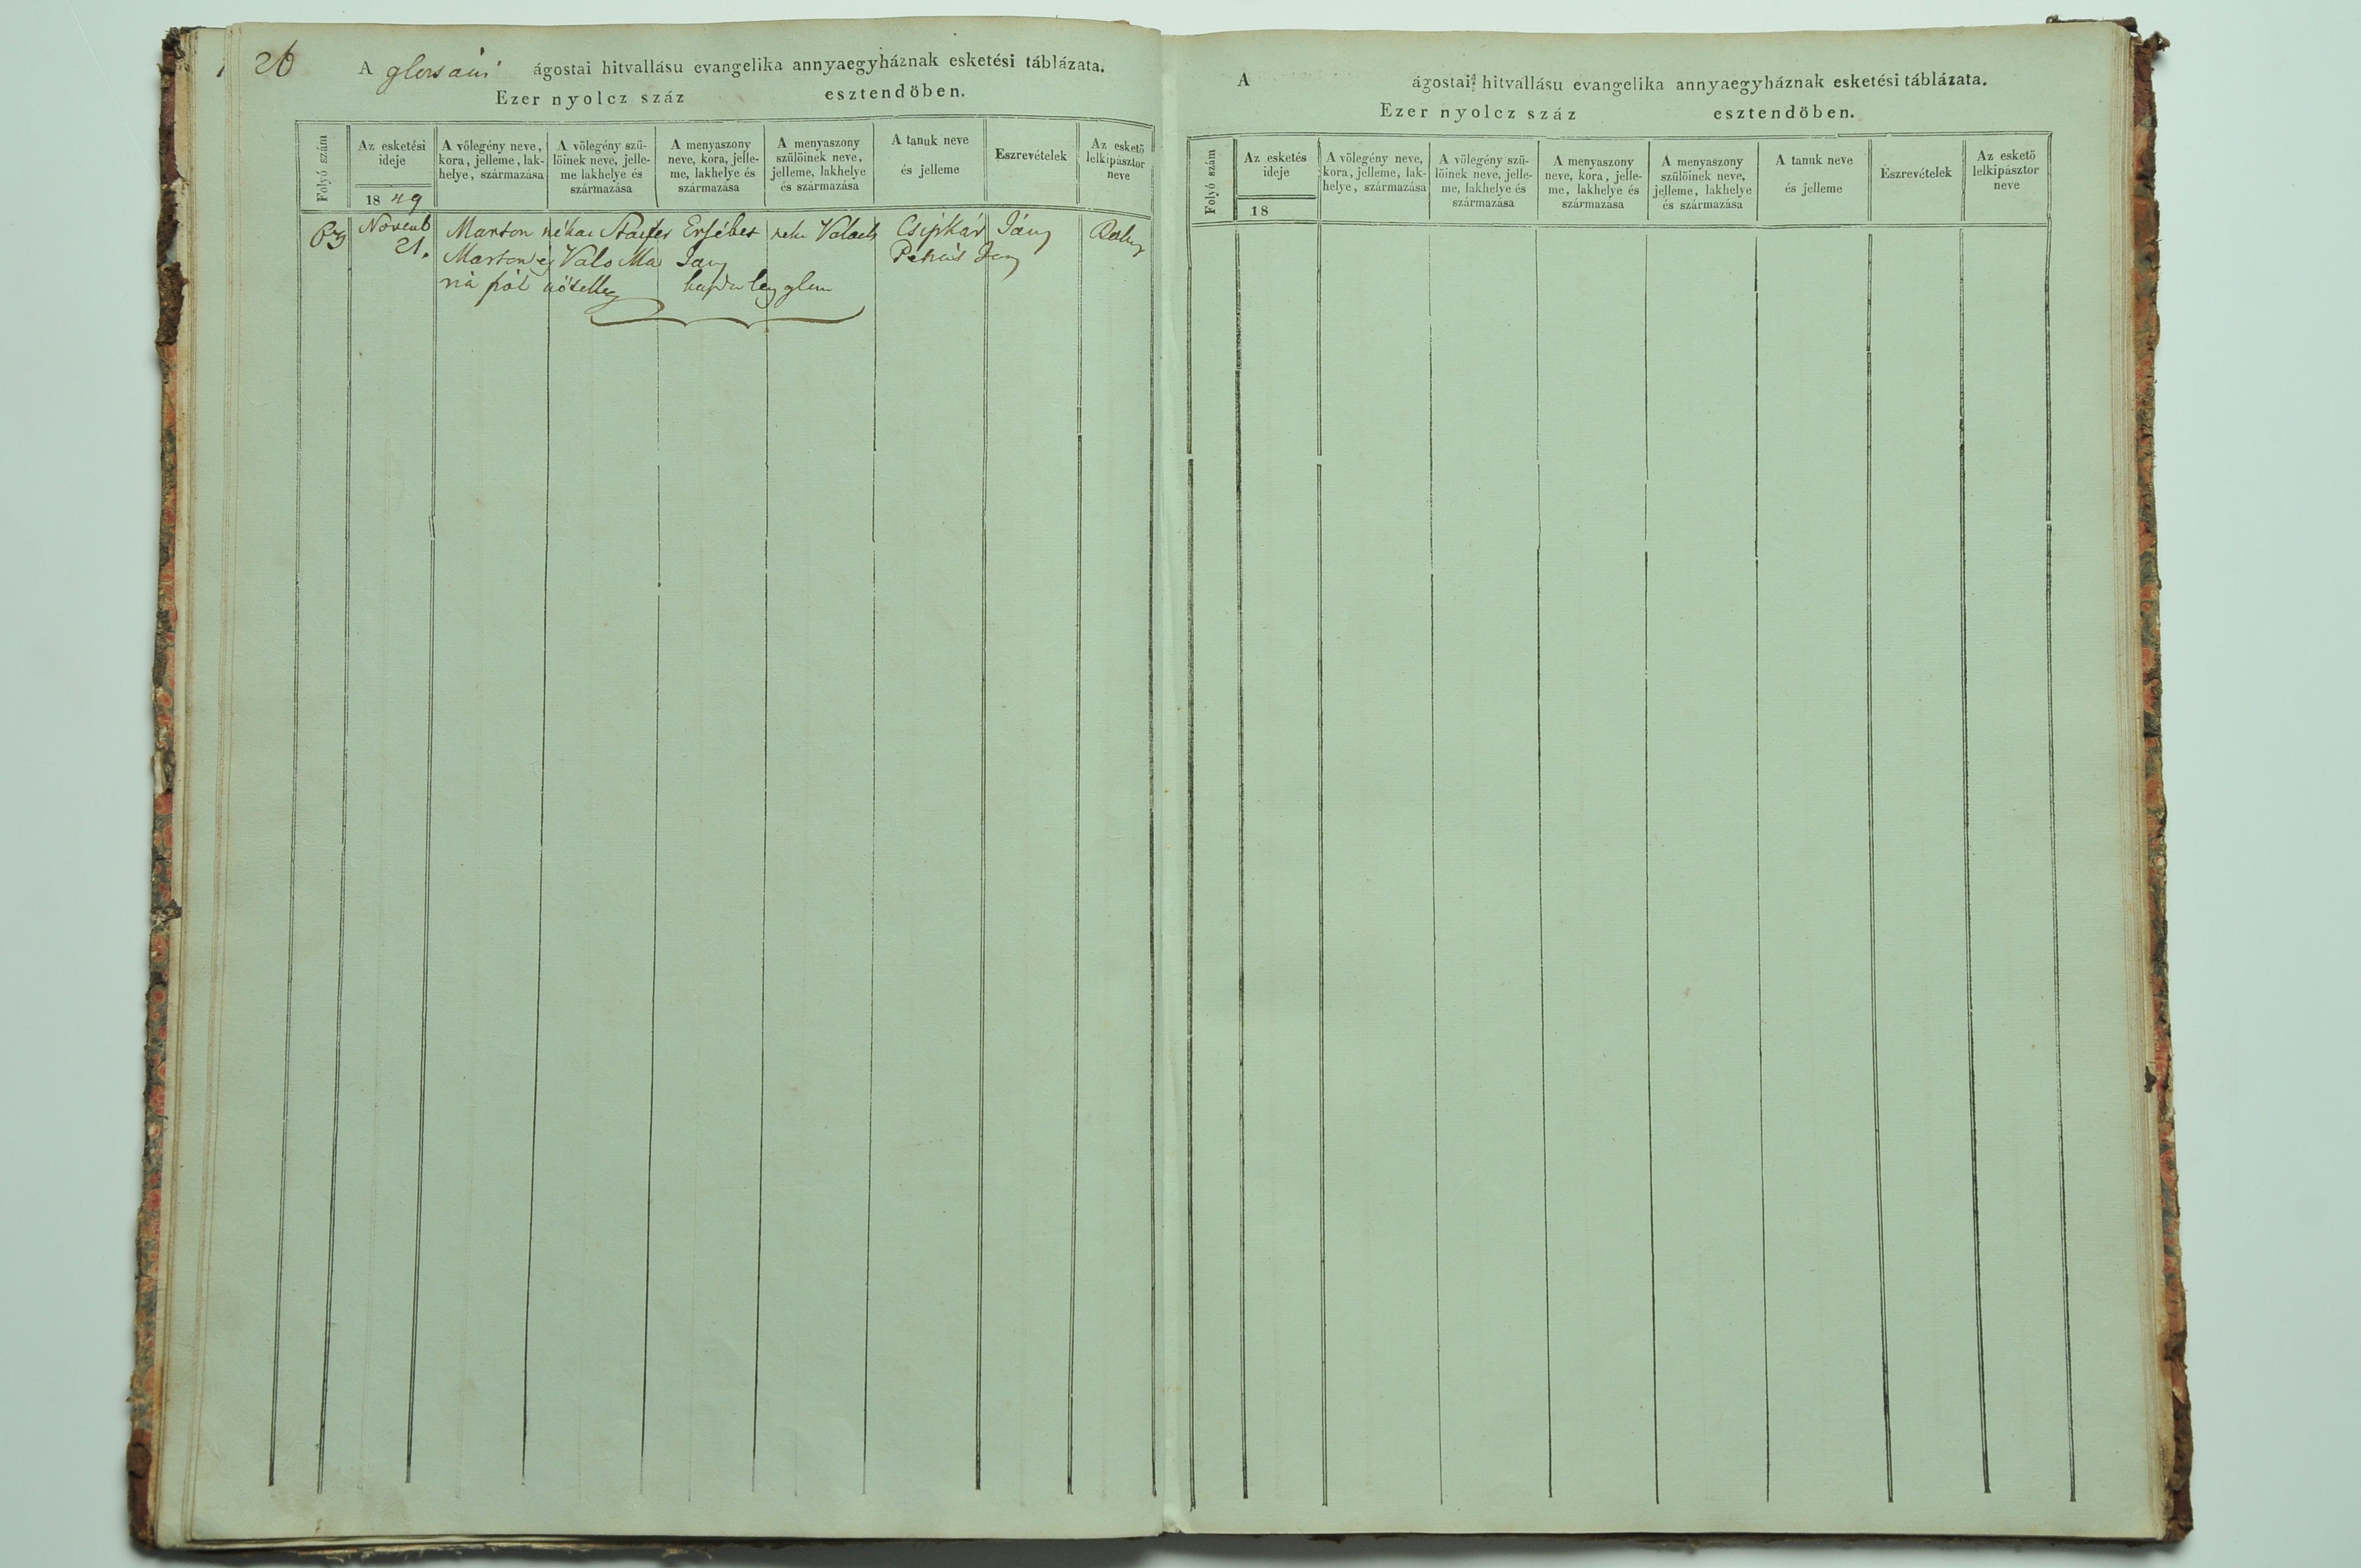 26
A glozsani ágostai hitvallásu evangelika annyaegyháznak esketési táblázata.
Ezer nyolcz száz esztendöben.
Folyó szám
Az esketési ideje
1849
A völegény neve, kora, jelleme, lakhelye, származása
A völegény szülöinek neve, jelleme lakhelye és származása
A menyaszony neve, kora, jelleme, lakhelye és származása
A menyaszony szülöinek neve, jelleme, lakhelye és származása
A tanuk neve és jelleme
Eszrevételek
Az esketö lelkipásztor neve
Novemb Marton néhai Ersébet Valach Csipkár Ján
21. Marton Valo Ma Jan
ria
A ágostai hitvallásu evangelika annyaegyháznak esketési táblázata.
Ezer nyolcz száz esztendöben.
Folyó szám
Az esketés ideje
18
A völegény neve, kora, jelleme, lakhelye, származása
A völegény szülöinek neve, jelleme, lakhelye és származása
A menyaszony neve, kora, jelleme, lakhelye és származása
A menyaszony szülöinek neve, jelleme, lakhelye és származása
A tanuk neve és jelleme
Észrevételek
Az esketö lelkipásztor neve